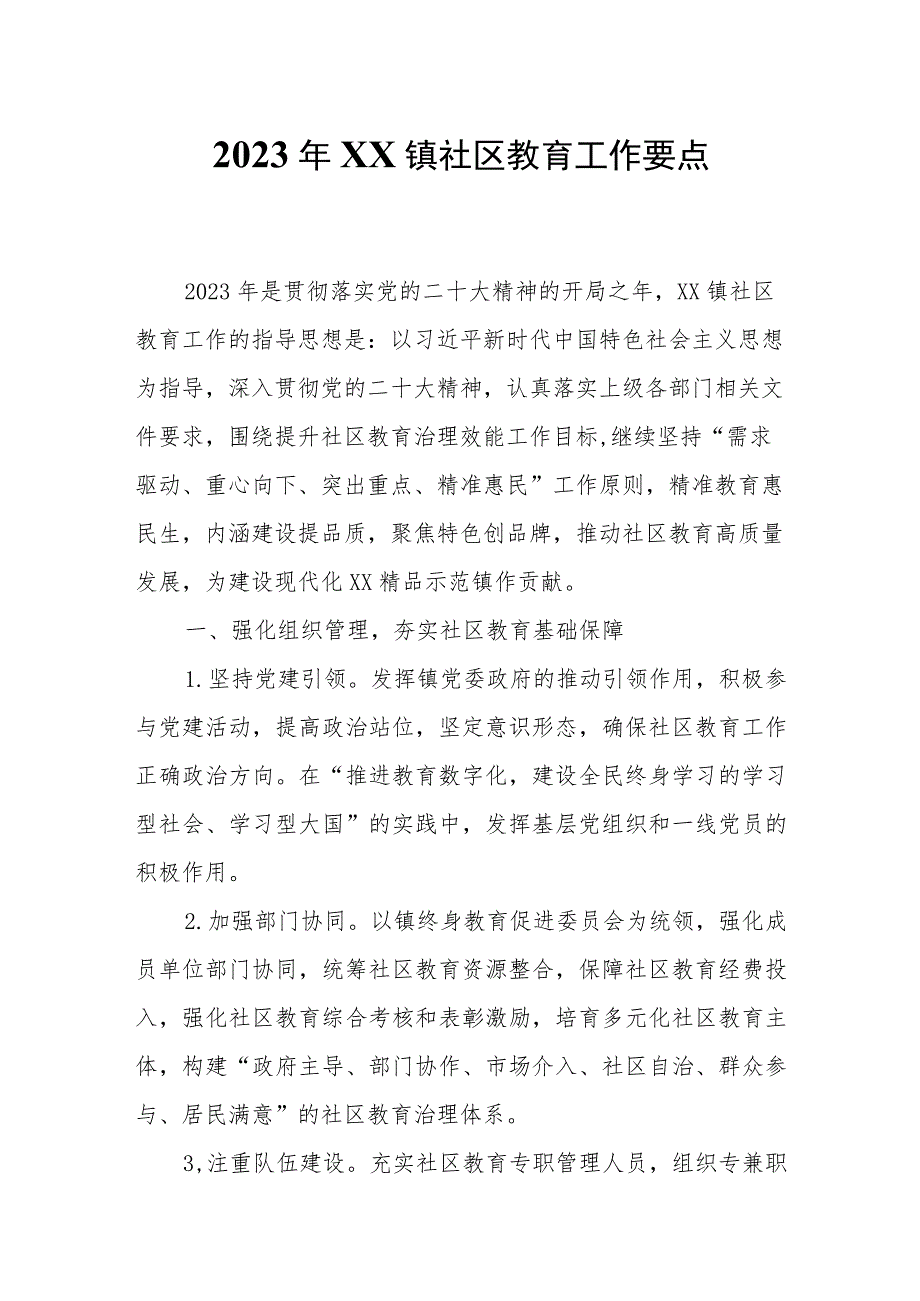 2023 年 XX 镇社区教育工作要点
2023 年是贯彻落实党的二十大精神的开局之年，XX 镇社区
教育工作的指导思想是：以习近平新时代中国特色社会主义思想
为指导，深入贯彻党的二十大精神，认真落实上级各部门相关文
件要求，围绕提升社区教育治理效能工作目标,继续坚持“需求
驱动、重心向下、突出重点、精准惠民”工作原则，精准教育惠
民生，内涵建设提品质，聚焦特色创品牌，推动社区教育高质量
发展，为建设现代化 XX 精品示范镇作贡献。
一、强化组织管理，夯实社区教育基础保障
1.坚持党建引领。发挥镇党委政府的推动引领作用，积极参
与党建活动，提高政治站位，坚定意识形态，确保社区教育工作
正确政治方向。在“推进教育数字化，建设全民终身学习的学习
型社会、学习型大国”的实践中，发挥基层党组织和一线党员的
积极作用。
2.加强部门协同。以镇终身教育促进委员会为统领，强化成
员单位部门协同，统筹社区教育资源整合，保障社区教育经费投
入，强化社区教育综合考核和表彰激励，培育多元化社区教育主
体，构建“政府主导、部门协作、市场介入、社区自治、群众参
与、居民满意”的社区教育治理体系。
3,注重队伍建设。充实社区教育专职管理人员，组织专兼职